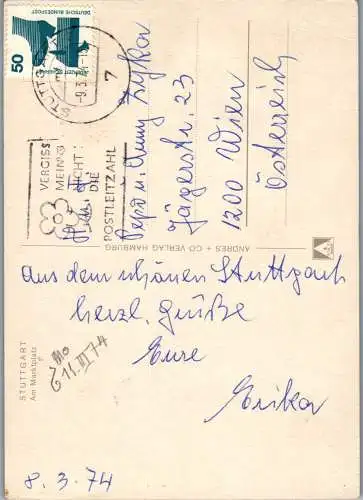 50
DEUTSCHE BUNDESPOST
STUTTG
-9.3.
7
VERGISS
MEIN
NICHT:
DIE
POSTLEITZAHL
Pepo u. Anny Zyka
Jägerstr. 23
1200 Wien
Österreich
ANDRES + CO VERLAG HAMBURG
Aus dem schönen Stuttgart
herzl. Grüße
Eure
Erika
STUTTGART
Am Marktplatz
Mo
11.III 74
8.3.74